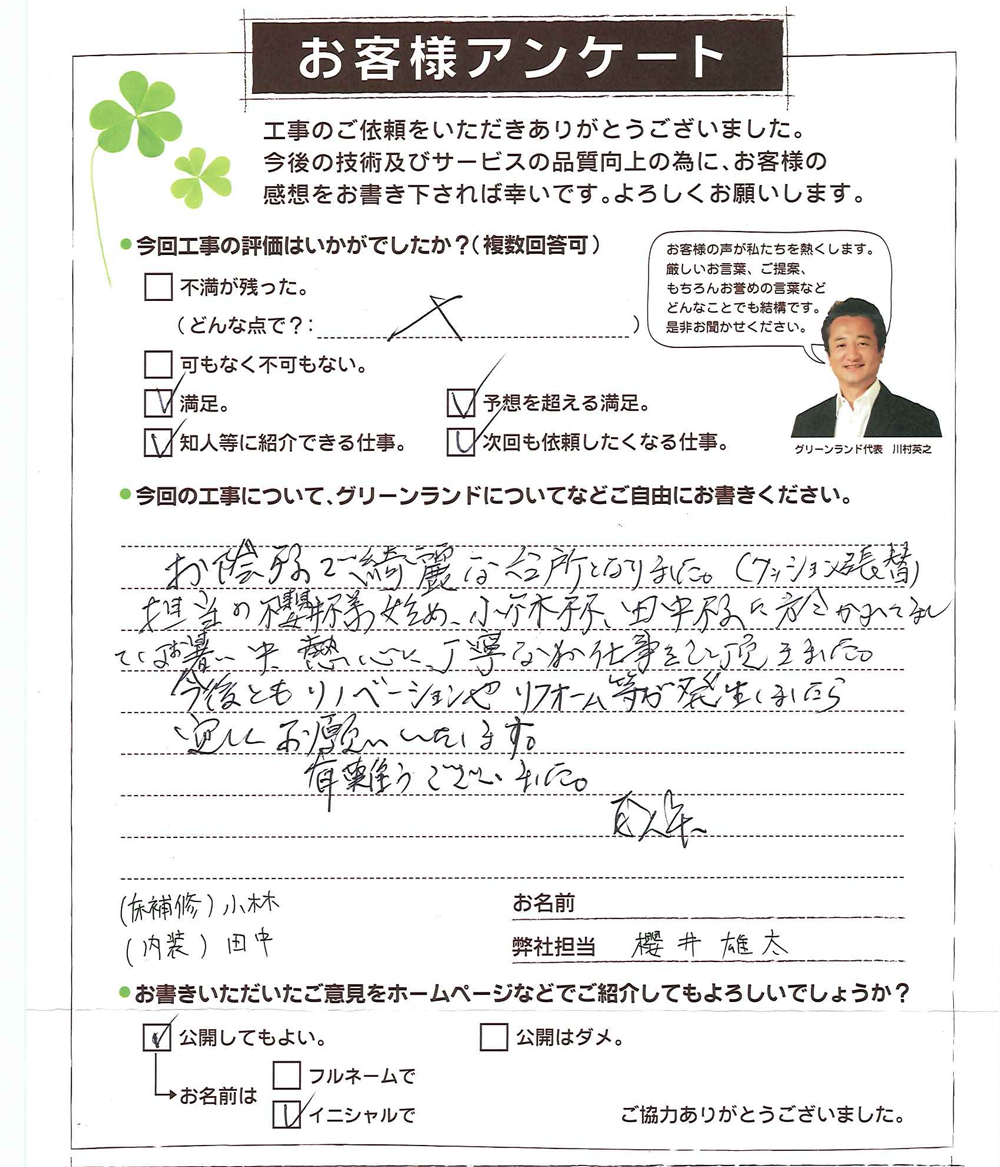 お客様アンケート
工事のご依頼をいただきありがとうございました。
今後の技術及びサービスの品質向上の為に、お客様の
感想をお書き下されば幸いです。よろしくお願いします。
今回工事の評価はいかがでしたか？（複数回答可）
不満が残った。
（どんな点で？：　）
可もなく不可もない。
満足。
予想を超える満足。
知人等に紹介できる仕事。
次回も依頼したくなる仕事。
お客様の声が私たちを熱くします。
厳しいお言葉、ご提案、
もちろんお誉めの言葉など
どんなことでも結構です。
是非お聞かせください。
グリーンランド代表　川村英之
今回の工事について、グリーンランドについてなどご自由にお書きください。
お陰様で綺麗な台所となりました。（クッション張替）
担当の櫻井様を始め、小林様、田中様に
お暑い中、熱心に、丁寧なお仕事をして頂きました。
今後ともリノベーションやリフォーム等が発生しましたら
宜しくお願いいたします。
有難うございました。
（床補修）小林
（内装）田中
お名前
弊社担当　櫻井雄太
お書きいただいたご意見をホームページなどでご紹介してもよろしいでしょうか？
公開してもよい。
公開はダメ。
お名前は
フルネームで
イニシャルで
ご協力ありがとうございました。